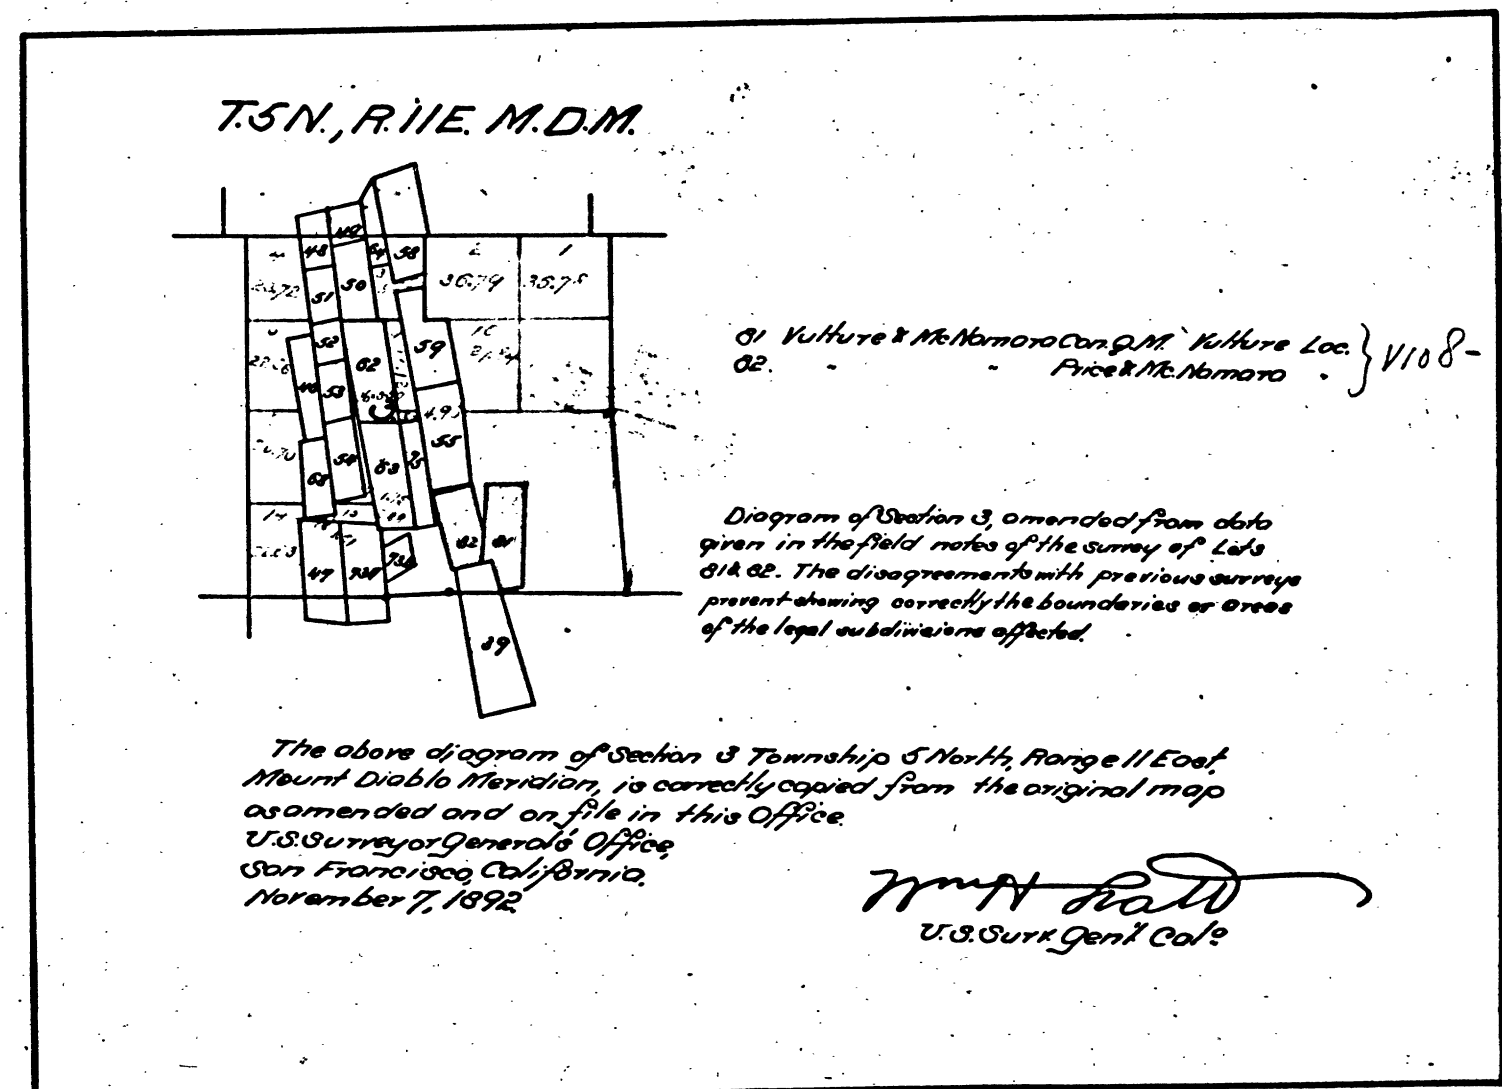 T.5N., R.11E. M.D.M.
49
48
64
58
4
2
1
50
36.79
35.75
51
52
59
62
46
53
3
55
54
63
68
82
81
47
73A
39
81 Vulture & McNamara Con. Q.M. Vulture Loc. } V108-
82. " " Price & McNamara "
Diagram of Section 3, amended from data
given in the field notes of the survey of Lots
81 & 82. The disagreements with previous surveys
prevent showing correctly the boundaries or areas
of the legal subdivisions affected.
The above diagram of Section 3 Township 5 North, Range 11 East,
Mount Diablo Meridian, is correctly copied from the original map
as amended and on file in this Office.
U.S. Surveyor General's Office,
San Francisco, California.
November 7, 1892.
Wm H Pratt
U.S. Surv. Gen'l Cala